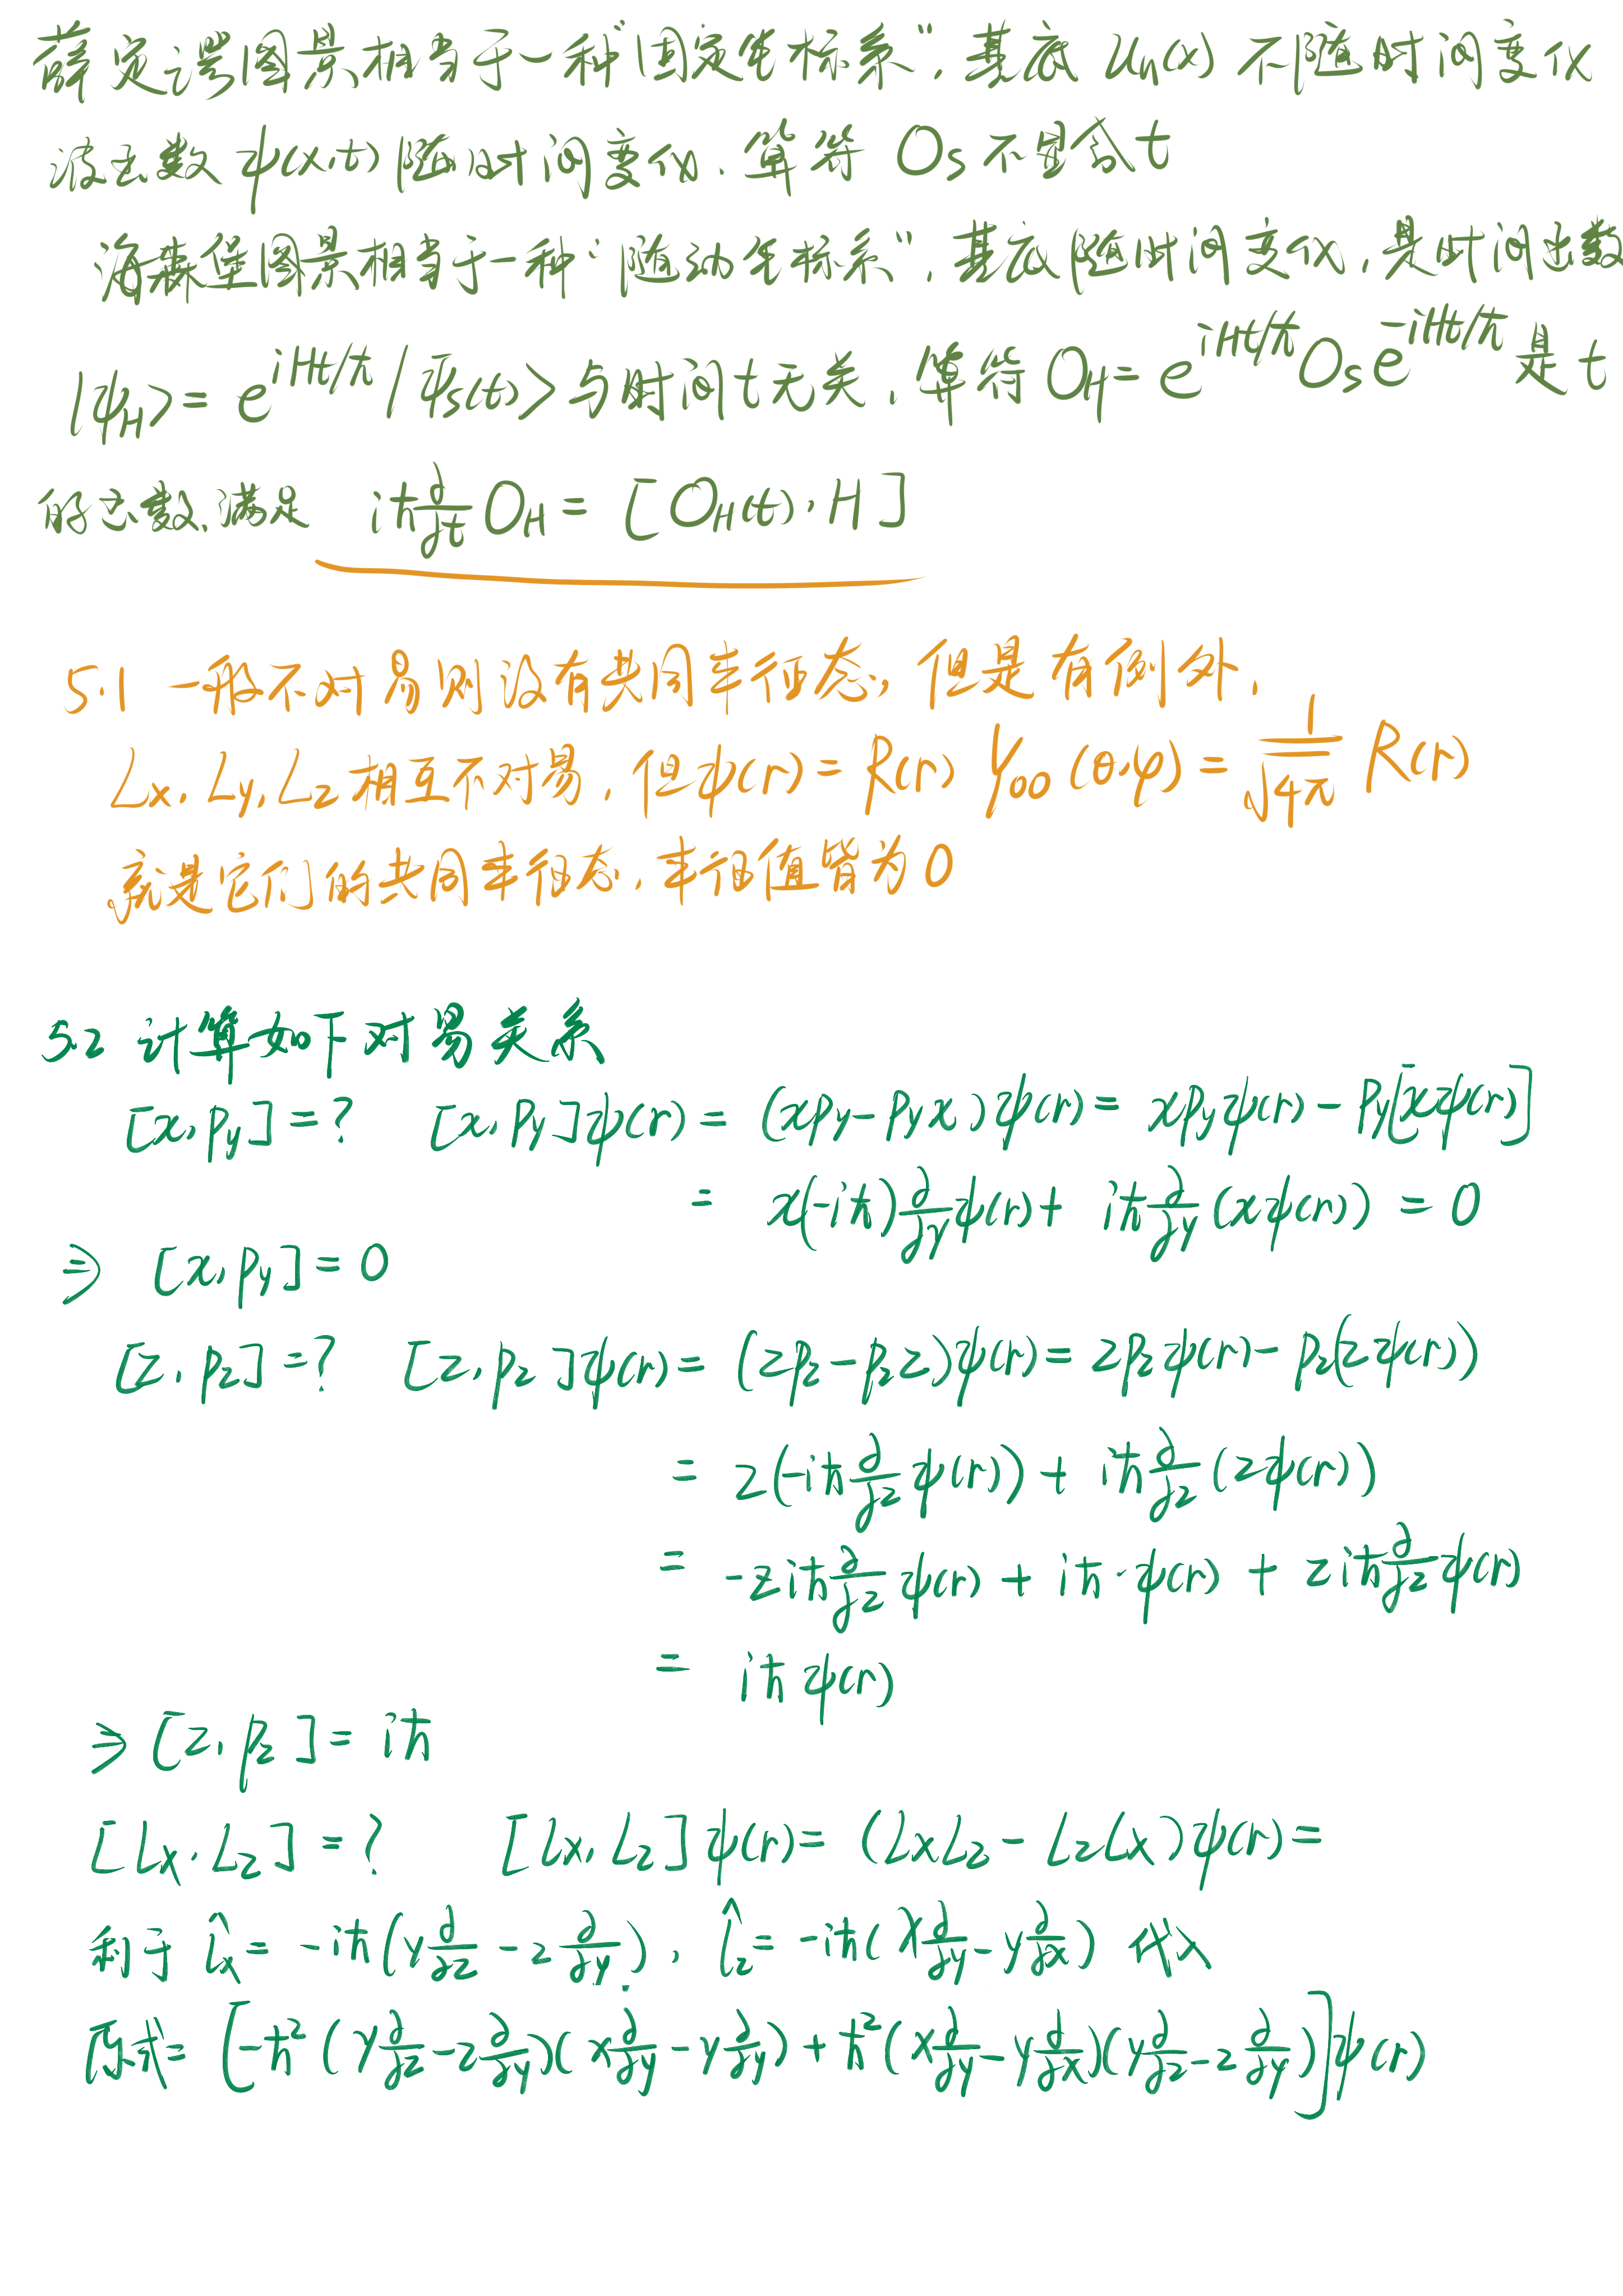 薛定谔图景相当于一种"固定坐标系",基底 Un(x) 不随时间变化
波函数 ψ(x,t) 随时间变化,算符 Os 不显含 t
海森堡图景相当于一种"随动坐标系",基底随时间变化,是时间函数
|ψ_H> = e^{iHt/ħ} |ψ_s(t)> 与时间t无关,算符 O_H = e^{iHt/ħ} O_s e^{-iHt/ħ} 是 t
的函数,满足 iħ ∂/∂t O_H = [O_H(t), H]
5.1 一般不对易则没有共同本征态,但是有例外.
Lx, Ly, Lz 相互不对易,但ψ(r) = R(r) Y₀₀(θ,φ) = 1/√4π R(r)
就是它们的共同本征态,本征值皆为0
5.2 计算如下对易关系
[x, py] = ? [x, py]ψ(r) = (xpy - pyx)ψ(r) = xpyψ(r) - py[xψ(r)]
= x(-iħ)∂/∂y ψ(r) + iħ ∂/∂y (xψ(r)) = 0
⇒ [x, py] = 0
[z, pz] = ? [z, pz]ψ(r) = (zpz - pzz)ψ(r) = zpzψ(r) - pz(zψ(r))
= z(-iħ ∂/∂z ψ(r)) + iħ ∂/∂z (zψ(r))
= -ziħ ∂/∂z ψ(r) + iħ·ψ(r) + ziħ ∂/∂z ψ(r)
= iħψ(r)
⇒ [z, pz] = iħ
[Lx, Lz] = ? [Lx, Lz]ψ(r) = (LxLz - LzLx)ψ(r) =
利于 l̂x = -iħ(y ∂/∂z - z ∂/∂y), l̂z = -iħ(x ∂/∂y - y ∂/∂x) 代入
原式 = [-ħ²(y ∂/∂z - z ∂/∂y)(x ∂/∂y - y ∂/∂y) + ħ²(x ∂/∂y - y ∂/∂x)(y ∂/∂z - z ∂/∂y)]ψ(r)